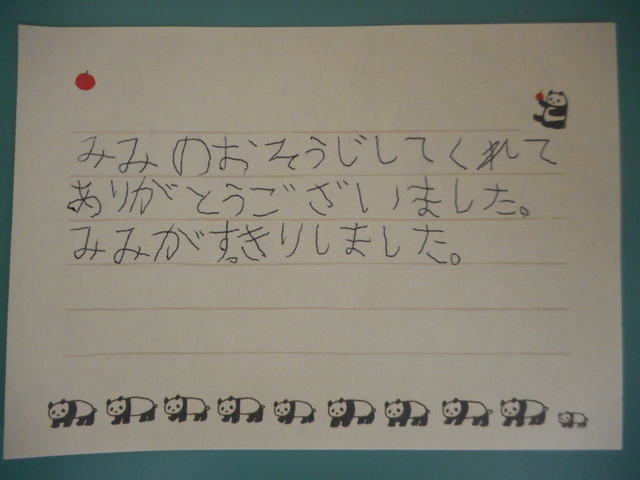 みみのおそうじしてくれて
ありがとうございました。
みみがすっきりしました。